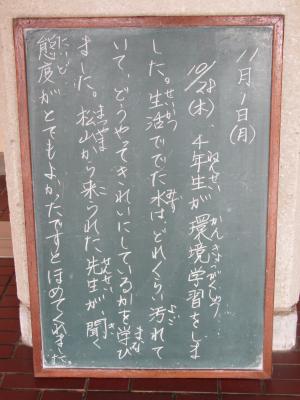 11月1日(月)
10/28(木)、4年生が環境学習をしま
した。生活ででた水は、どれくらい汚れて
いて、どうやってきれいにしているかを学び
ました。松山から来られた先生が、聞く
態度がとてもよかったですとほめてくれました。